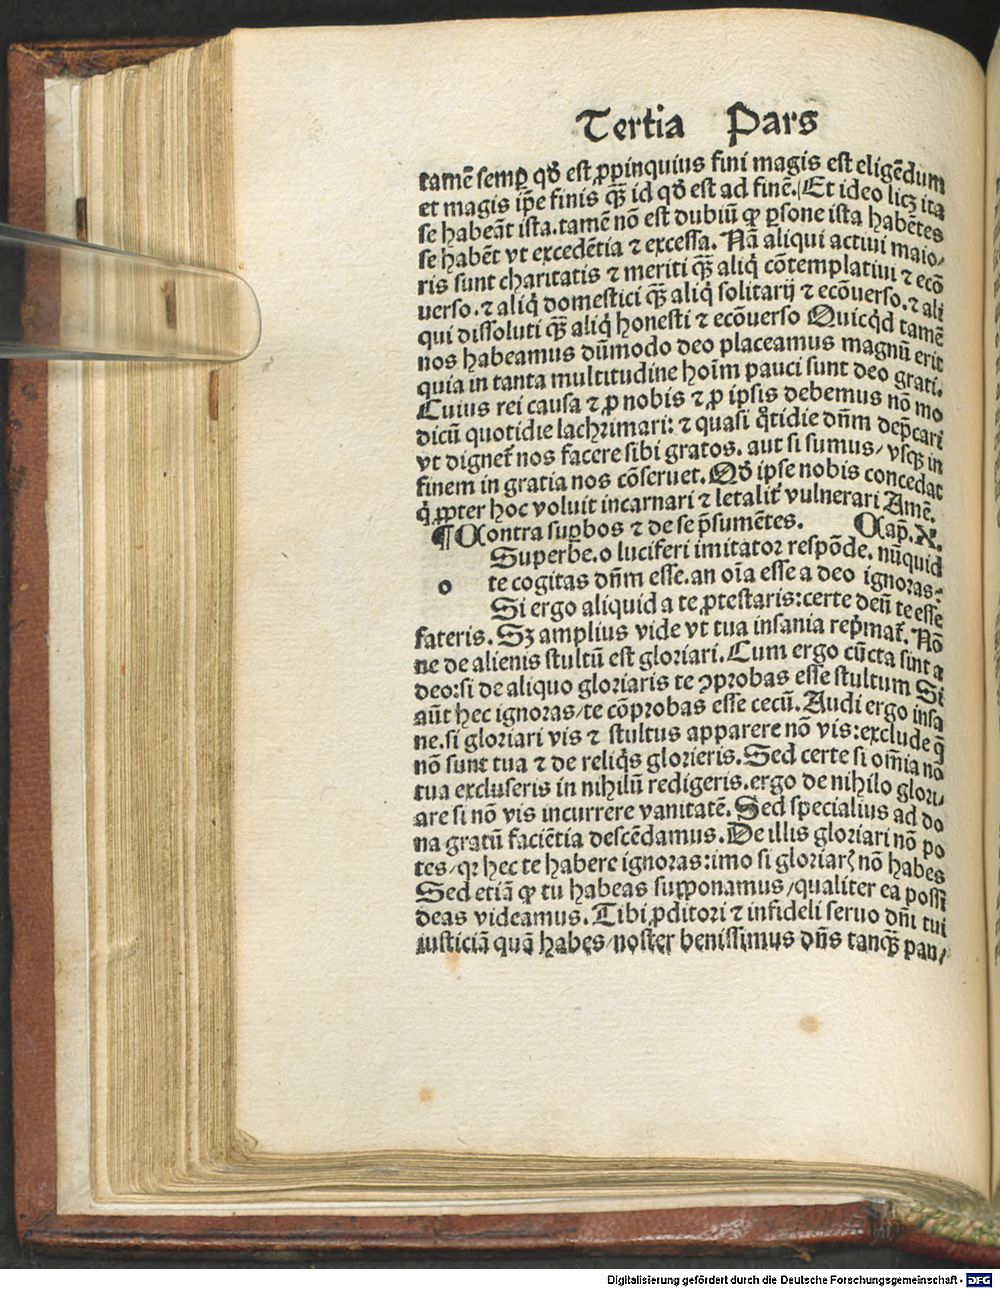 Tertia Pars
tamē semꝑ qđ est ꝓpinquius fini magis est eligēdum
et magis ip̄e finis q̄ꝫ id qđ est ad finē. Et ideo licꝫ ita
se habeāt ista. tamē nō est dubiū ꝙ ꝑsone ista habētes
se habēt vt excedētia ⁊ excessa. Nā aliqui actiui maio⸗
ris sunt charitatis ⁊ meriti q̄ꝫ aliq̇ cōtemplatiui ⁊ ecō
uerso. ⁊ aliq̇ domestici q̄ꝫ aliq̇ solitarij ⁊ ecōuerso. ⁊ ali
qui dissoluti q̄ꝫ aliq̇ honesti ⁊ ecōuerso Quicq̇d tamē
nos habeamus dūmodo deo placeamus magnū erit
quia in tanta multitudine hoīm pauci sunt deo grati.
Cuius rei causa ⁊ ꝓ nobis ⁊ ꝓ ipsis debemus nō mo
dicū quotidie lachrimari: ⁊ quasi q̊tidie dn̄m dep̄cari
vt dignet᷑ nos facere sibi gratos. aut si sumus/ vsqꝫ in
finem in gratia nos cōseruet. Qđ ip̄se nobis concedat
q̇ ꝓpter hoc voluit incarnari ⁊ letalit᷑ vulnerari Amē.
¶ Contra suꝑbos ⁊ de se p̄sumētes. Cap̄. X.
Superbe. o luciferi imitator respōde. nūquid
o te cogitas dn̄m esse. an oīa esse a deo ignoras.
Si ergo aliquid a te ꝓtestaris: certe deū te esse
fateris. Sꝫ amplius vide vt tua insania rep̄mat᷑. Nō
ne de alienis stultū est gloriari. Cum ergo cūcta sint a
deo: si de aliquo gloriaris te ꝯprobas esse stultum Si
aūt hec ignoras/ te cōprobas esse cecū. Audi ergo insa
ne. si gloriari vis ⁊ stultus apparere nō vis: exclude q̄
nō sunt tua ⁊ de reliq̇s glorieris. Sed certe si om̄ia nō
tua excluseris in nihilū redigeris. ergo de nihilo glori⸗
are si nō vis incurrere vanitatē. Sed specialius ad do
na gratū faciētia descēdamus. De illis gloriari nō po
tes/ qꝛ hec te habere ignoras: imo si gloriarꝭ nō habes
Sed etiā ꝙ tu habeas supponamus/ qualiter ea possi
deas videamus. Tibi ꝓditori ⁊ infideli seruo dn̄i tui
iusticiā quā habes/ noster benissimus dn̄s tanq̄ꝫ pau⸗
Digitalisierung gefördert durch die Deutsche Forschungsgemeinschaft - DFG